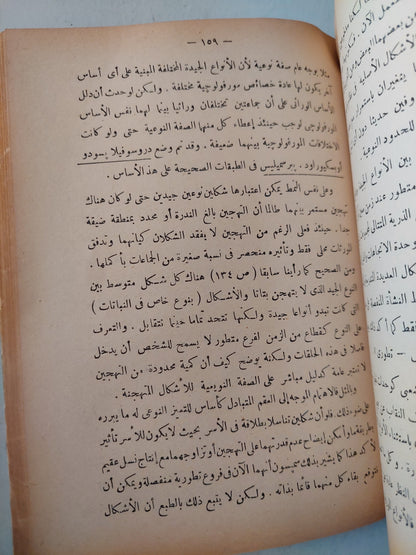 — ١٥٩ —
مثلا بوجه عام صفة نوعية لأن الأنواع الجيدة المختلفة المبنية على أى أساس
آخر يكون لها عادة خصائص مورفولوجية مختلفة . ولكن لو حدث أن دلل
الأساس الوراثى على أن جماعتين تختلفان وراثيا بينما لهما نفس الأساس
المورفولوجى لوجب حينئذ إعطاء كل منهما الصفة النوعية حتى ولو كانت
الاختلافات المورفولوجية بينهما ضعيفة . وقد تم وضع دروسوفيلا پسودو
أوبسكيورا ود . پرسميليس فى الطبقات الصحيحة على هذا الأساس .
وعلى نفس النمط يمكن إعتبارها شكلين نوعيين جيدين حتى لو كان هناك
تهجين مستمر بينهما طالما أن التهجين بالغ الندرة أو محدد بمنطقة ضيقة
جدا . فعلى الرغم من التهجين لا يفقد الشكلان كيانهما وتدفق
المورثات محلى فقط وتأثيره منحصر فى نسبة صغيرة من الجماعات بأكملها .
ومن الصحيح كما رأينا سابقا ( ص ١٣٤ ) هناك كل شكل متوسط بين
النوع الجيد الذى لا يتهجين بتاتا والأشكال ( بنوع خاص فى النباتات )
التى كانت تبدو أنواعا جيدة ولكنها تتحد تماما حينما تتقابل . والتعرف
على النوع كقطاع من الزمن لفرع متطور لا يسمح للشخص أن يدخل
فاصلا فى هذه الحلقات ولكنه يوضح كيف أن كمية محدودة من التهجين
لا تعتبر عامة كدليل مباشر على الصفة النويعية للأشكال المتهجنة .
وبالمثل فالاهتمام الموجه إلى العقم المتبادل كأساس للتميز النوعى له ما يبرره
على ضوء ذلك . فلو أن شكلين تناسلا بطلاقة فى الأسر بحيث لا يكون للأسر تأثير
فما وأمكن إيضاح عدم قدرتهما على التهجين أو تزاوجهما مع إنتاج نسل عقيم
لأكد هذا كما يشير بذلك سمپسون أنهما الآن فى فروع تطورية منفصلة ويمكن أن
نتوقع بقاء كل منهما قائما بذاته . ولكن لا يتبع ذلك بالطبع أن الأشكال